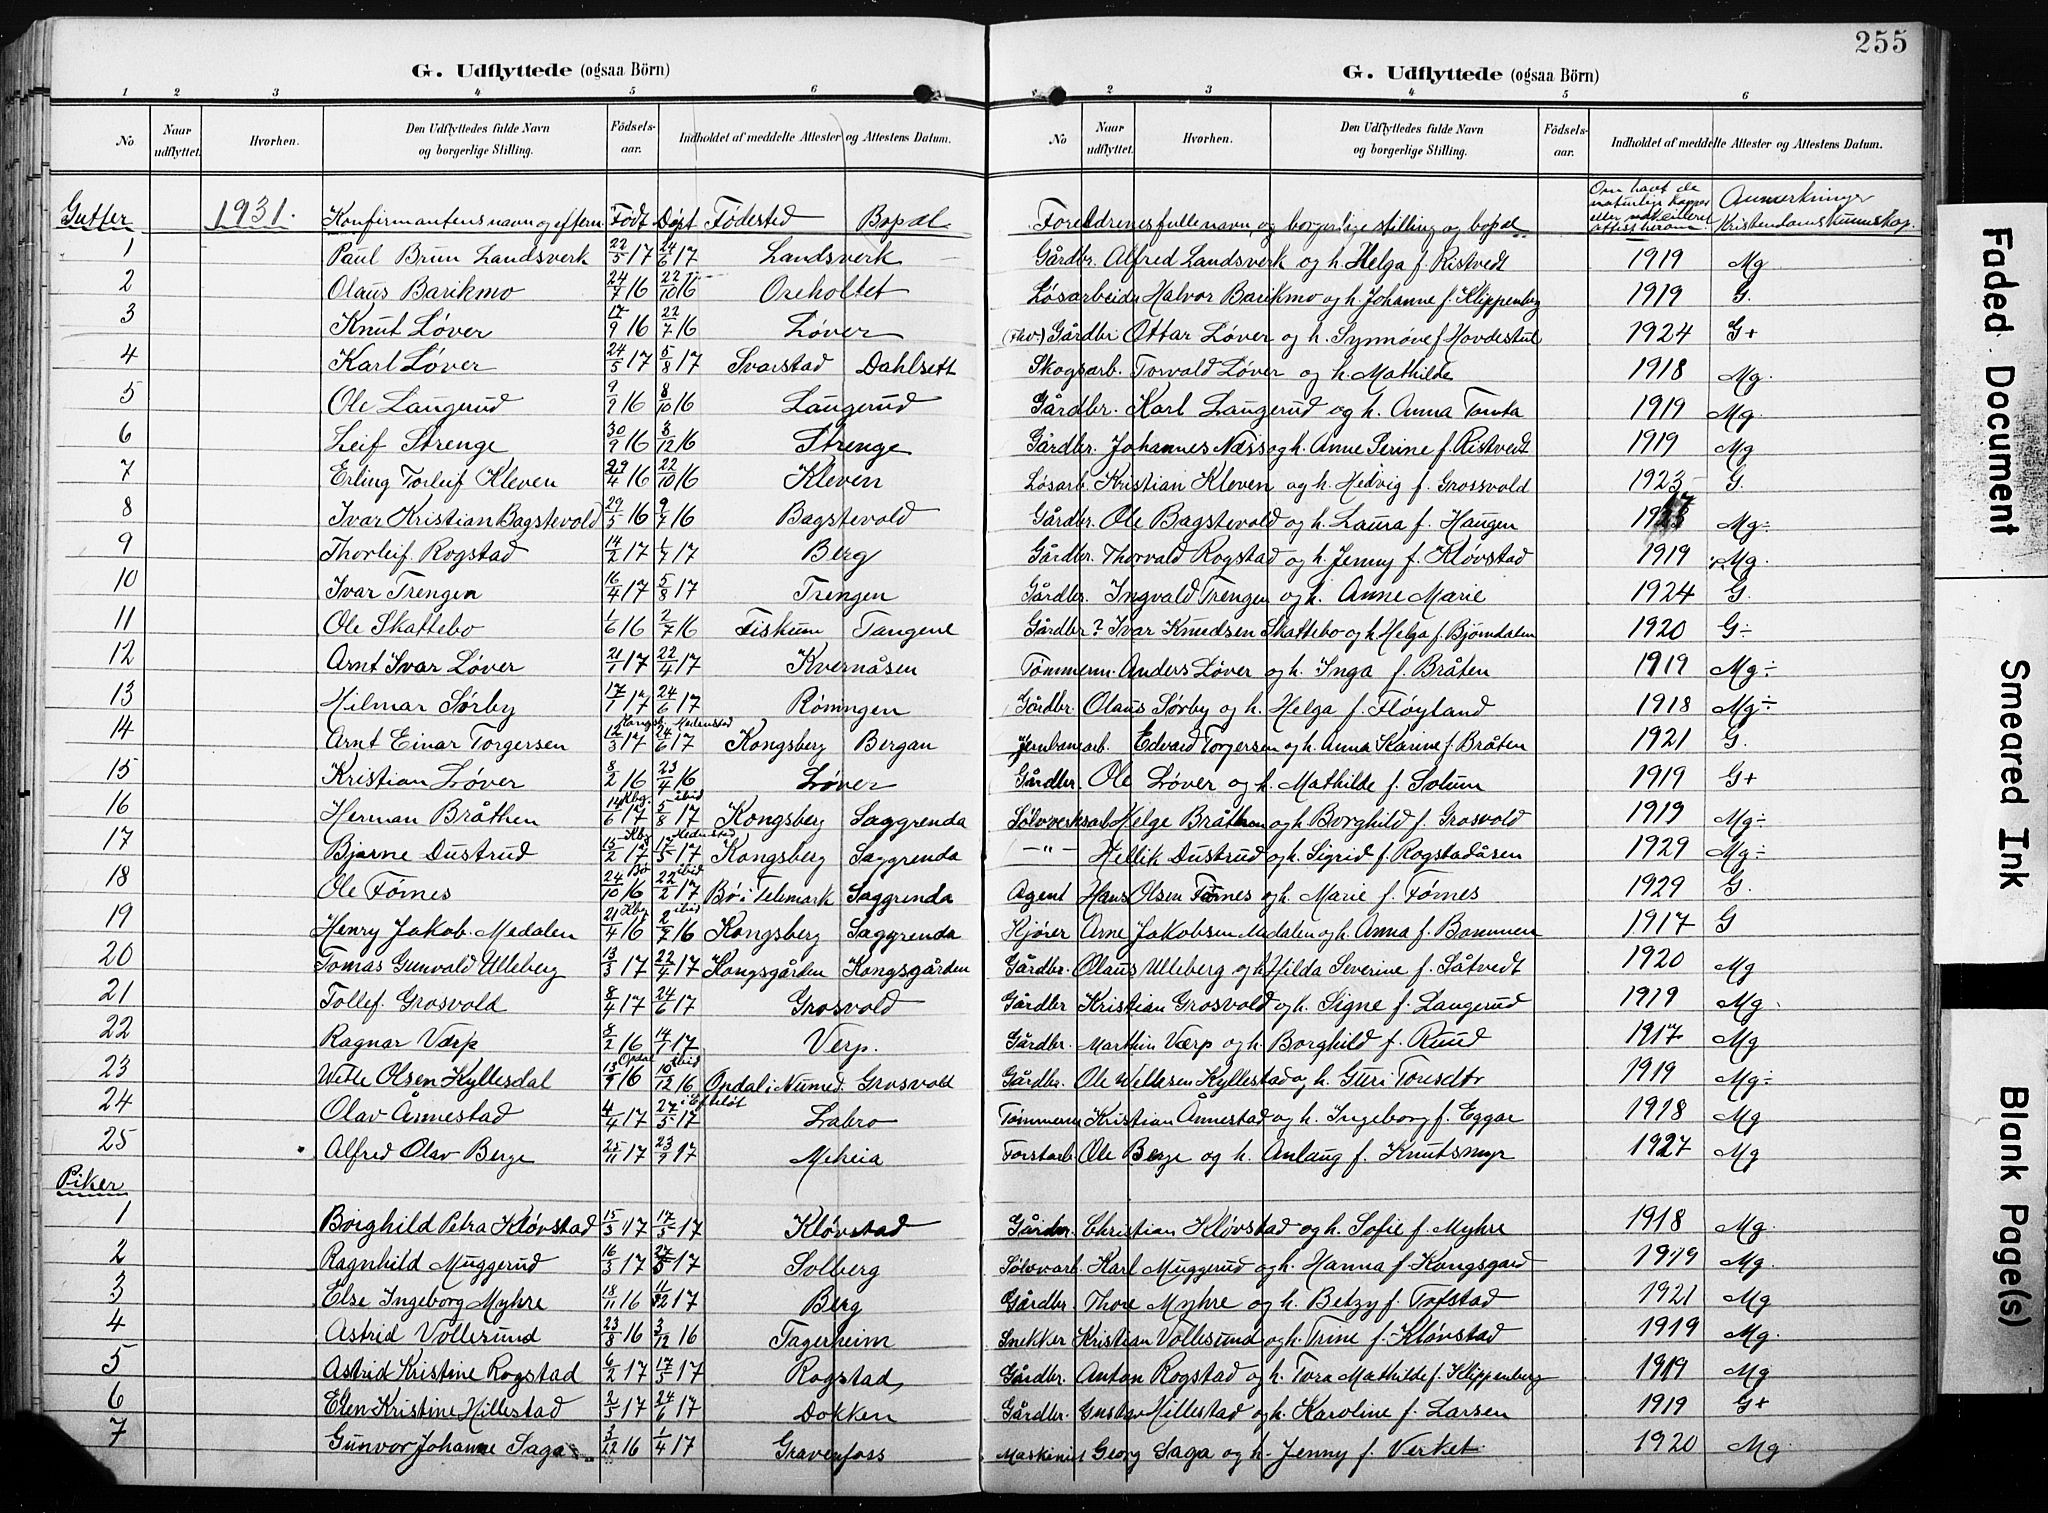 255
G. Udflyttede (ogsaa Börn)
1 2 3 4 5 6
No Naar udflyttet. Hvorhen. Den Udflyttedes fulde Navn og borgerlige Stilling. Födsels-aar. Indholdet af meddelte Attester og Attestens Datum.
Gutter 1931. Konfirmantens navn og eftern. Født Døpt Fødested Bopæl
1 Paul Brun Landsverk 22/5 17 24/6 17 Landsverk
2 Olaus Barikmo 24/7 16 22/10 16 Oreholtet
3 Knut Løver 17/9 16 22/7 16 Løver
4 Karl Løver 24/5 17 5/8 17 Svarstad Dahlsett
5 Ole Laugerud 9/9 16 8/10 16 Laugerud
6 Leif Strenge 30/9 16 3/12 16 Strenge
7 Erling Torleif Kleven 29/4 16 22/10 16 Kleven
8 Ivar Kristian Bagstevold 29/5 16 9/7 16 Bagstevold
9 Thorleif Rogstad 14/2 17 1/7 17 Berg
10 Ivar Trengen 16/4 17 5/8 17 Trengen
11 Ole Skattebo 1/6 16 2/7 16 Fiskum Tangene
12 Arnt Ivar Løver 21/1 17 22/4 17 Kvernåsen
13 Hilmar Sørby 17/1 17 24/6 17 Rømingen
14 Arnt Einar Torgersen 12/3 17 24/6 17 Kongsberg Bergan
15 Kristian Løver 8/2 16 23/4 16 Løver
16 Herman Bråthen 14/6 17 Kbg. 5/8 17 ibid Kongsberg Saggrenda
17 Bjarne Dustrud 15/2 17 Kbg 17/5 17 Kongsberg Saggrenda
18 Ole Førnes 24/10 16 Bø 22/2 17 ibid Bø i Telemark Saggrenda
19 Henry Jakob Medalen 21/4 16 Kbg 2/7 16 ibid Kongsberg Saggrenda
20 Tomas Gunvald Ulleberg 13/3 17 22/4 17 Kongsgården Kongsgården
21 Tollef Grosvold 8/4 17 24/6 17 Grosvold
22 Ragnar Værp 8/2 16 14/1 17 Verp.
23 Wetle Olsen Kyllesdal 13/9 16 Opdal 10/12 16 ibid Opdal i Numed. Grosvold
24 Olav Ånnestad 4/4 17 27/5 17 i Efteløt Labro
25 Alfred Olav Berge 25/11 17 23/9 17 Meheia
Piker
1 Borghild Petra Kløvstad 15/3 17 17/5 17 Kløvstad
2 Ragnhild Muggerud 16/3 17 27/5 17 Solberg
3 Else Ingeborg Myhre 18/11 16 11/2 17 Berg
4 Astrid Vollesund 23/8 16 3/12 16 Fagerheim
5 Astrid Kristine Rogstad 6/2 17 17/5 17 Rogstad
6 Elen Kristine Hillestad 2/5 17 24/6 17 Dokken
7 Gunvor Johanne Saga 3/12 16 1/4 17 Gravenfoss
G. Udflyttede (ogsaa Börn)
2 3 4 5 6
No Naar udflyttet. Hvorhen. Den Udflyttedes fulde Navn og borgerlige Stilling. Födsels-aar. Indholdet af meddelte Attester og Attestens Datum.
Foreldrenes fulle navn, og borgerlige stilling og bopæl Om havt de naturlige kopper eller vaksineret attest herom. Anmerkninger Kristendomskunnskap.
Gårdbr. Alfred Landsverk og h. Helga f. Ristvedt 1919 Mg
Løsarbeider Halvor Barikmo og h. Johanne f. Klippenberg 1919 G.
Gårdbr Ottar Løver og h. Synnøve f. Hovdestul 1924 G+
Skogsarb. Torvald Løver og h. Mathilde 1918 Mg.
Gårdbr. Karl Laugerud og h. Anna Tonta 1919 Mg.
Gårdbr. Johannes Næss og h. Anne Serine f. Ristvedt 1919 Mg
Løsarb. Kristian Kleven og h. Hedvig f. Grosvold 1923 G.
Gårdbr. Ole Bagstevold og h. Laura f. Haugen Mg÷
Gårdbr. Thorvald Rogstad og h. Jenny f. Kløvstad 1919 Mg.
Gårdbr. Ingvald Trengen og h. Anne Marie 1924 G.
Gårdbr? Ivar Knudsen Skattebo og h Helga f. Bjørndalen 1920 G÷
Tømmerm. Anders Løver og h. Inga f. Bråten 1919 Mg÷
Gårdbr. Olaus Sørby og h. Helga f. Fløyland 1918 Mg÷
Jernbanearb. Edvard Torgersen og h. Anna Karine f. Bråten 1921 G.
Gårdbr. Ole Løver og h. Mathilde f. Solum 1919 G+
Sølvverksarb Helge Bråthen og h. Borghild f. Grosvold 1919 Mg÷
—"— Hellik Dustrud og h. Sigrid f. Rogstadåsen 1929 Mg÷
Agent Hans Olsen Førnes og h. Marie f. Førnes 1929 G.
Kjører Arne Jakobsen Medalen og h. Anna f. Bommen 1917 G
Gårdbr. Olaus Ulleberg og h Hilda Severine f. Såtvedt 1920 Mg
Gårdbr Kristian Grosvold og h. Signe f. Laugerud 1919 Mg.
Gårdbr. Marthin Værp og h. Borghild f. Ruud 1917 Mg
Gårdbr. Ole Wetlesen Kyllestad og h. Guri Toresdtr 1919 Mg÷
Tømmerm Kristian Ånnestad og h. Ingeborg f. Eggar 1918 Mg
Forstarb Ole Berge og h. Anlaug f. Knutsmyr 1927 Mg
Gårdbr. Christian Kløvstad og h. Sofie f. Myhre 1918 Mg.
Sølvvarb. Karl Muggerud og h. Hanna f. Kongsgard 1919 Mg.
Gårdbr. Thore Myhre og h. Betzy f. Tofstad 1921 Mg
Snekker Kristian Vollesund og h. Trine f. Kløvstad 1919 Mg.
Gårdbr. Anton Rogstad og h. Tora Mathilde f. Klippenberg 1919 Mg
Gårdbr. Gustav Hillestad og h. Karoline f. Larsen 1919 G+
Maskinist Georg Saga og h. Jenny f. Verket. 1920 Mg.
Faded Document
Smeared Ink
Blank Page(s)